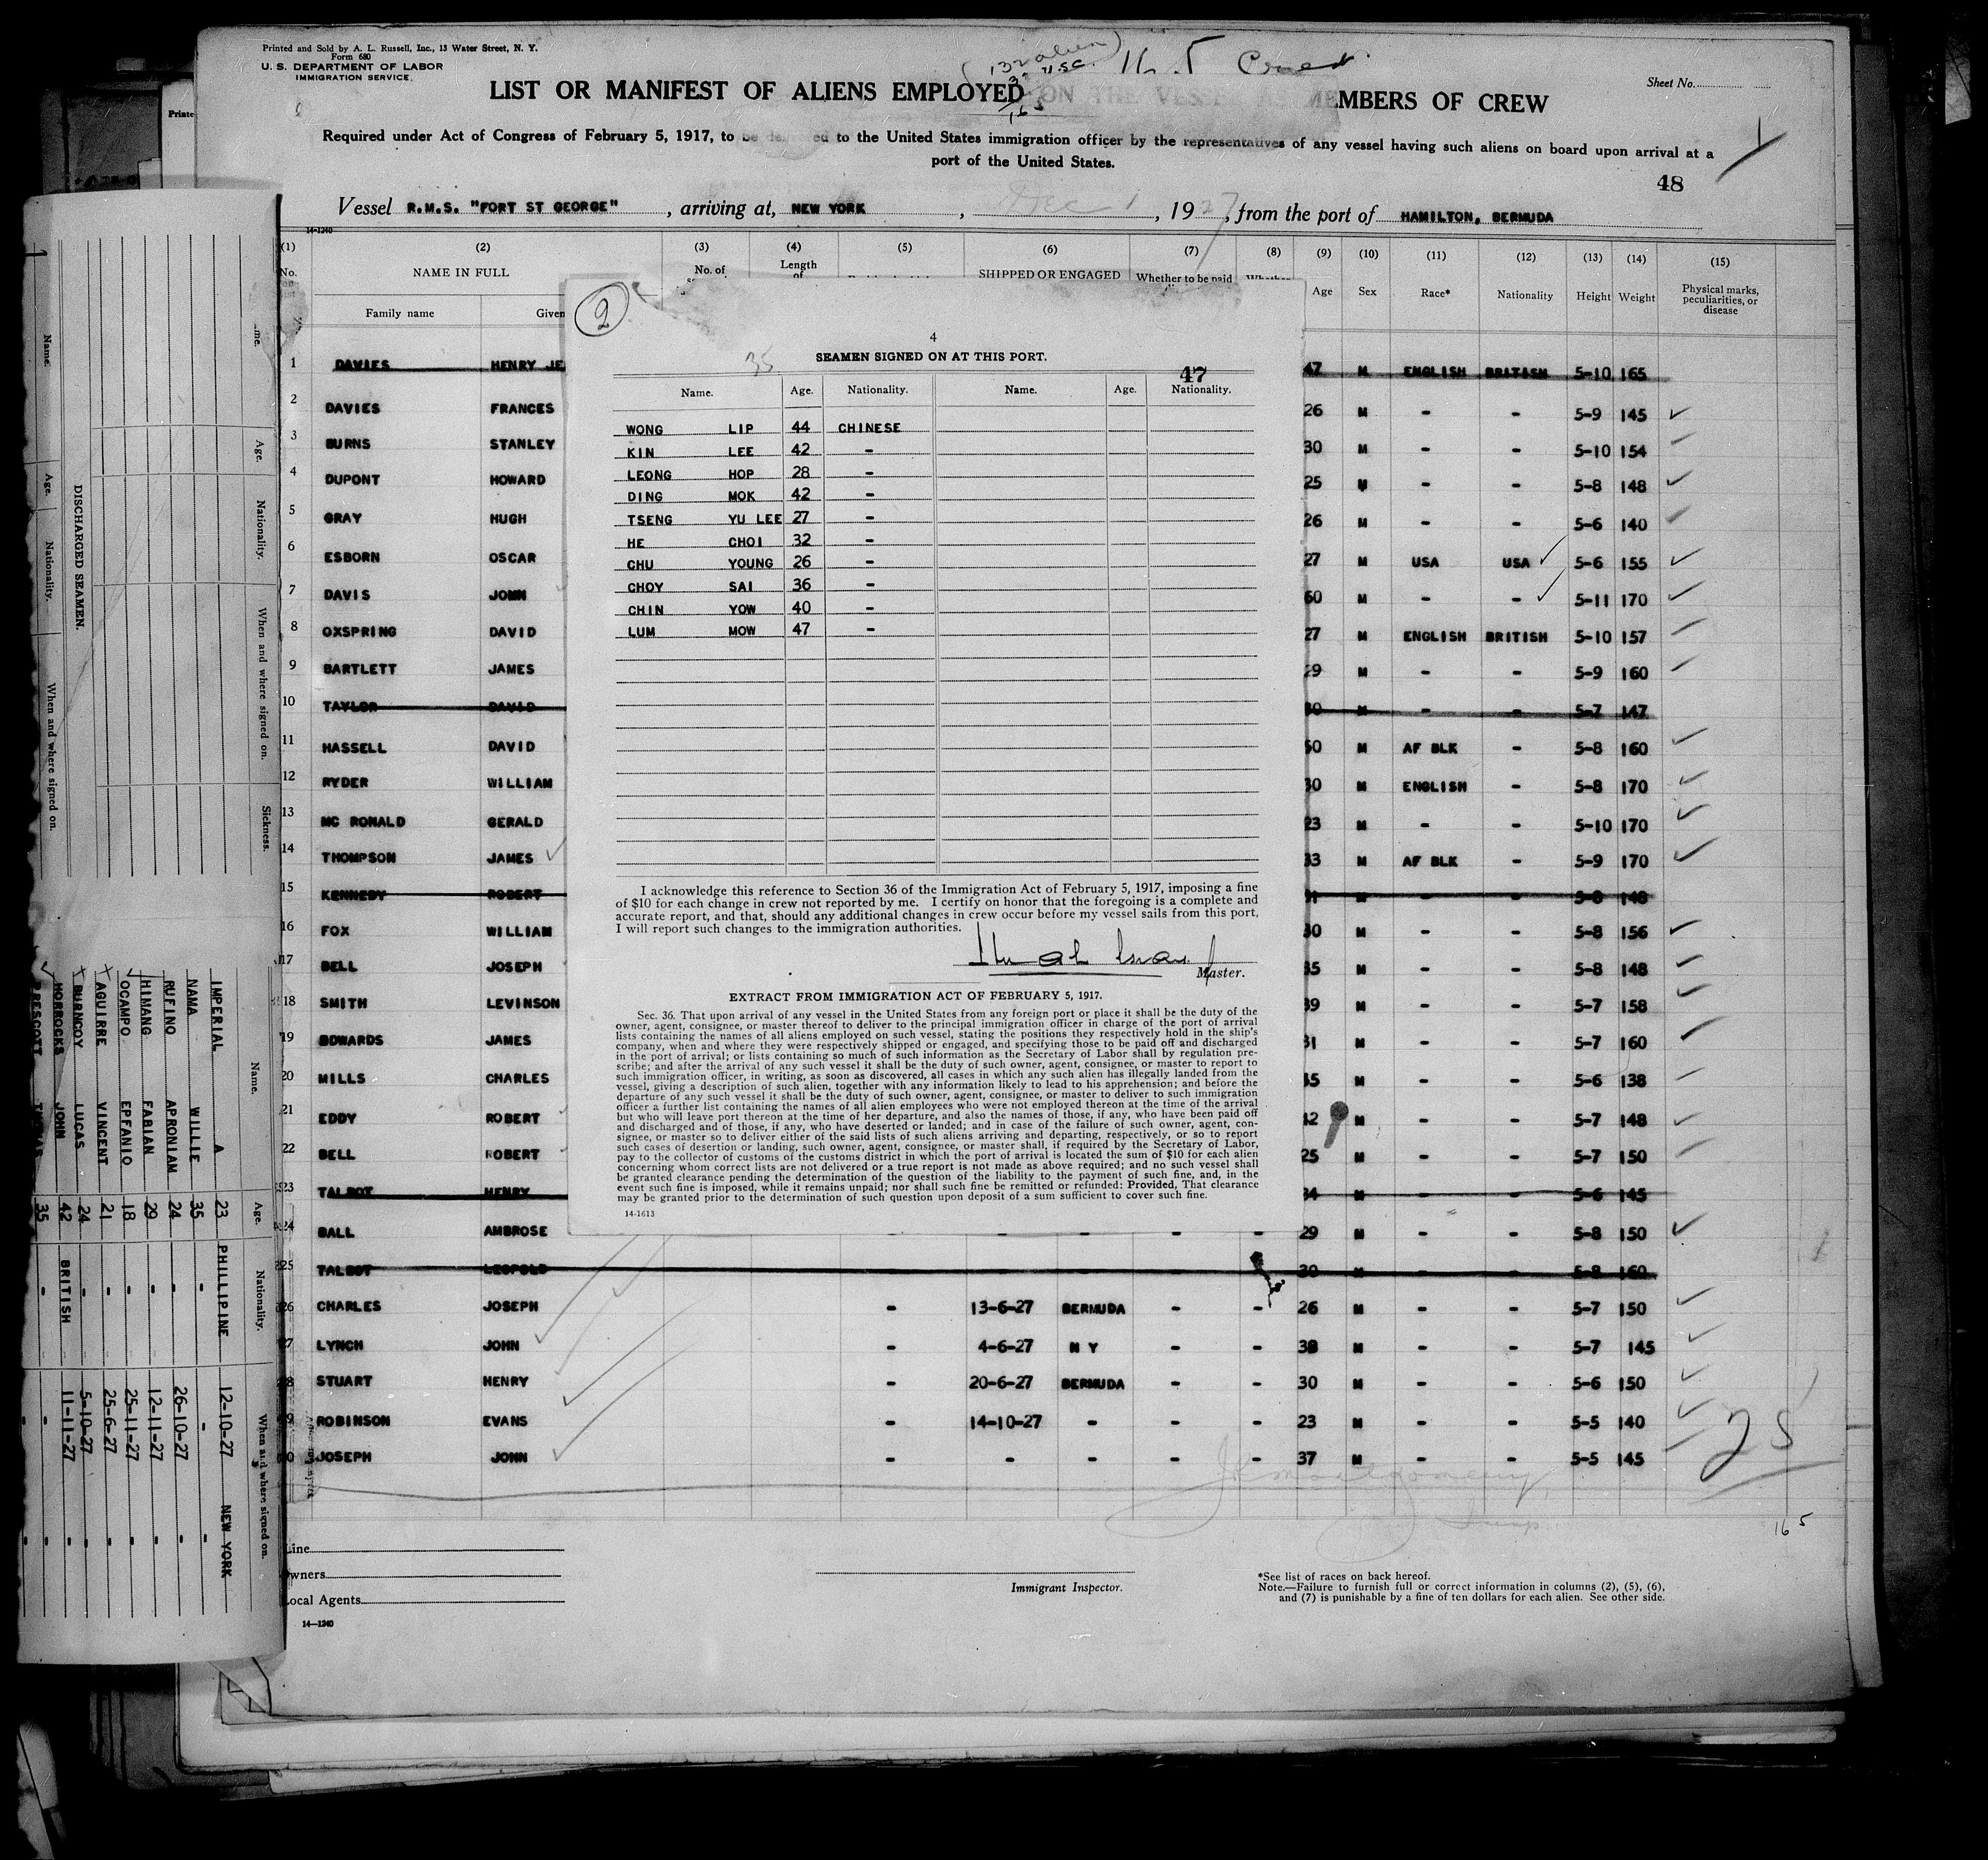 Printed and Sold by A. L. Russell, Inc., 13 Water Street, N. Y.
Form 680
U. S. DEPARTMENT OF LABOR
IMMIGRATION SERVICE.
LIST OR MANIFEST OF ALIENS EMPLOYED ON THE VESSEL AS MEMBERS OF CREW
Sheet No.
165 Crew
Required under Act of Congress of February 5, 1917, to be delivered to the United States immigration officer by the representatives of any vessel having such aliens on board upon arrival at a
port of the United States.
48
Vessel R.M.S. "FORT ST GEORGE", arriving at, NEW YORK, Dec 1, 1927, from the port of HAMILTON, BERMUDA
14-1240
(1) (2) (3) (4) (5) (6) (7) (8) (9) (10) (11) (12) (13) (14) (15)
No. NAME IN FULL No. of Length of SHIPPED OR ENGAGED Whether to be paid Age Sex Race* Nationality Height Weight Physical marks, peculiarities, or disease
Family name Given
1 DAVIES HENRY JE 47 M ENGLISH BRITISH 5-10 165
2 DAVIES FRANCES 26 M - - 5-9 145
3 BURNS STANLEY 30 M - - 5-10 154
4 DUPONT HOWARD 25 M - - 5-8 148
5 GRAY HUGH 26 M - - 5-6 140
6 ESBORN OSCAR 27 M USA USA 5-6 155
7 DAVIS JOHN 60 M - - 5-11 170
8 OXSPRING DAVID 27 M ENGLISH BRITISH 5-10 157
9 BARTLETT JAMES 29 M - - 5-9 160
10 TAYLOR DAVID 30 M - - 5-7 147
11 HASSELL DAVID 50 M AF BLK - 5-8 160
12 RYDER WILLIAM 30 M ENGLISH - 5-8 170
13 MC RONALD GERALD 23 M - - 5-10 170
14 THOMPSON JAMES 33 M AF BLK - 5-9 170
15 KENNEDY ROBERT 31 M - - 5-8 148
16 FOX WILLIAM 30 M - - 5-8 156
17 BELL JOSEPH 35 M - - 5-8 148
18 SMITH LEVINSON 39 M - - 5-7 158
19 EDWARDS JAMES 31 M - - 5-7 160
20 MILLS CHARLES 45 M - - 5-6 138
21 EDDY ROBERT 42 M - - 5-7 148
22 BELL ROBERT 25 M - - 5-7 150
23 TALBOT HENRY 34 M - - 5-6 145
24 BALL AMBROSE - - - - - 29 M - - 5-8 150
25 TALBOT LEOPOLD 30 M - - 5-8 160
26 CHARLES JOSEPH - 13-6-27 BERMUDA - - 26 M - - 5-7 150
27 LYNCH JOHN - 4-6-27 N Y - - 38 M - - 5-7 145
28 STUART HENRY - 20-6-27 BERMUDA - - 30 M - - 5-6 150
29 ROBINSON EVANS - 14-10-27 - - - 23 M - - 5-5 140
30 JOSEPH JOHN - - - - - 37 M - - 5-5 145
25
165
Line
Owners
Local Agents
Immigrant Inspector.
*See list of races on back hereof.
Note.—Failure to furnish full or correct information in columns (2), (5), (6),
and (7) is punishable by a fine of ten dollars for each alien. See other side.
14—1240
2
4
35
SEAMEN SIGNED ON AT THIS PORT.
47
Name. Age. Nationality. Name. Age. Nationality.
WONG LIP 44 CHINESE
KIN LEE 42 -
LEONG HOP 28 -
DING MOK 42 -
TSENG YU LEE 27 -
HE CHOI 32 -
CHU YOUNG 26 -
CHOY SAI 36 -
CHIN YOW 40 -
LUM MOW 47 -
I acknowledge this reference to Section 36 of the Immigration Act of February 5, 1917, imposing a fine
of $10 for each change in crew not reported by me. I certify on honor that the foregoing is a complete and
accurate report, and that, should any additional changes in crew occur before my vessel sails from this port,
I will report such changes to the immigration authorities.
Master.
EXTRACT FROM IMMIGRATION ACT OF FEBRUARY 5, 1917.
Sec. 36. That upon arrival of any vessel in the United States from any foreign port or place it shall be the duty of the
owner, agent, consignee, or master thereof to deliver to the principal immigration officer in charge of the port of arrival
lists containing the names of all aliens employed on such vessel, stating the positions they respectively hold in the ship's
company, when and where they were respectively shipped or engaged, and specifying those to be paid off and discharged
in the port of arrival; or lists containing so much of such information as the Secretary of Labor shall by regulation pre-
scribe; and after the arrival of any such vessel it shall be the duty of such owner, agent, consignee, or master to report to
such immigration officer, in writing, as soon as discovered, all cases in which any such alien has illegally landed from the
vessel, giving a description of such alien, together with any information likely to lead to his apprehension; and before the
departure of any such vessel it shall be the duty of such owner, agent, consignee, or master to deliver to such immigration
officer a further list containing the names of all alien employees who were not employed thereon at the time of the arrival
but who will leave port thereon at the time of her departure, and also the names of those, if any, who have been paid off
and discharged and of those, if any, who have deserted or landed; and in case of the failure of such owner, agent, con-
signee, or master so to deliver either of the said lists of such aliens arriving and departing, respectively, or so to report
such cases of desertion or landing, such owner, agent, consignee, or master shall, if required by the Secretary of Labor,
pay to the collector of customs of the customs district in which the port of arrival is located the sum of $10 for each alien
concerning whom correct lists are not delivered or a true report is not made as above required; and no such vessel shall
be granted clearance pending the determination of the question of the liability to the payment of such fine, and, in the
event such fine is imposed, while it remains unpaid; nor shall such fine be remitted or refunded: Provided, That clearance
may be granted prior to the determination of such question upon deposit of a sum sufficient to cover such fine.
14-1613
DISCHARGED SEAMEN.
Name. Age. Nationality. When and where signed on.
Age. Nationality. When and where signed on. Sickness.
Name. Age. Nationality. When and where signed on.
IMPERIAL A 23 PHILLIPINE 12-10-27 NEW YORK
NAMA WILLIE 35 - - -
RUFINO APRONIAM 24 - 26-10-27 -
HIMANG FABIAN 29 - 12-11-27 -
OCAMPO EPFANIO 18 - 25-11-27 -
AGUIRRE VINCENT 21 - 25-6-27 -
BURNGOY LUCAS 24 - 5-10-27 -
HORROCKS JOHN 42 BRITISH 11-11-27 -
PRESCOTT THOMAS 35 - - -